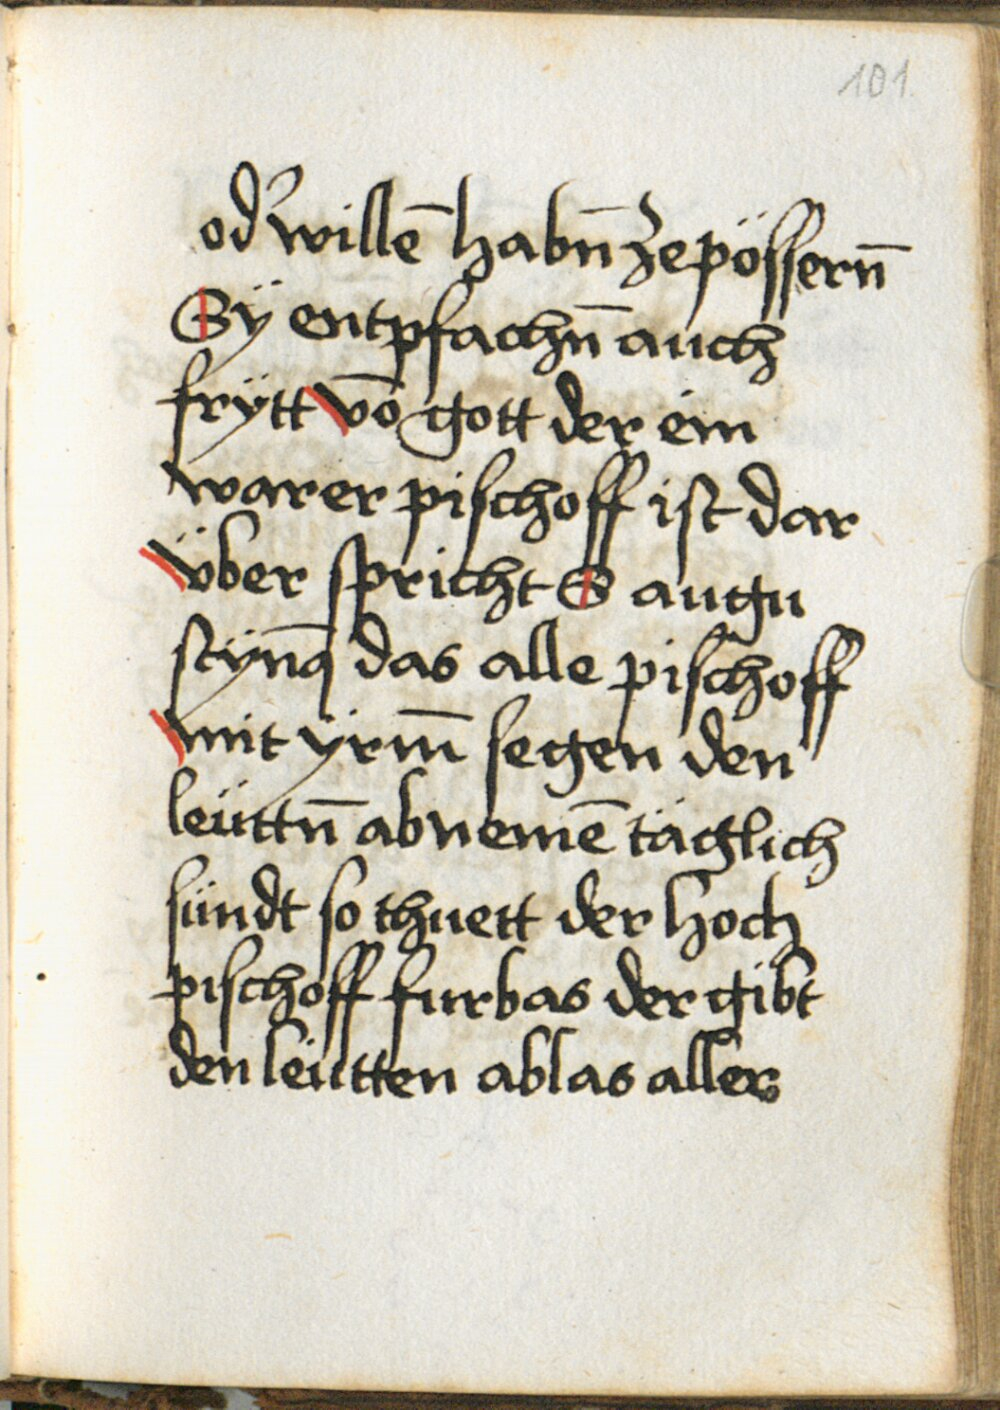 101.
od' willē habn̄ ze pösſern̄
Sÿ entpfachn̄ auch
frÿtt vō gott der ein
warer piſchoff iſt dar
v̈ber ſpricht S augu
ſtÿnq̄ das alle piſchoff
mit ÿrm̄ ſegen den
leüttn̄ abnemē täglich
ſündt ſo thuett der hoch
piſchoff furbas der gibt
den leütten ablas aller